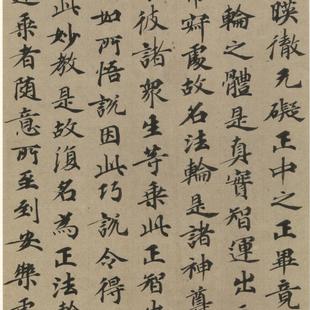 暎徹无礙正中之正畢竟
輪之體是真實智運出
寂處故名法輪是諸神尊
彼諸衆生等乘此正智出
如所悟說因此巧說令得
此妙教是故復名為正法輪
乘者隨意所至到安樂